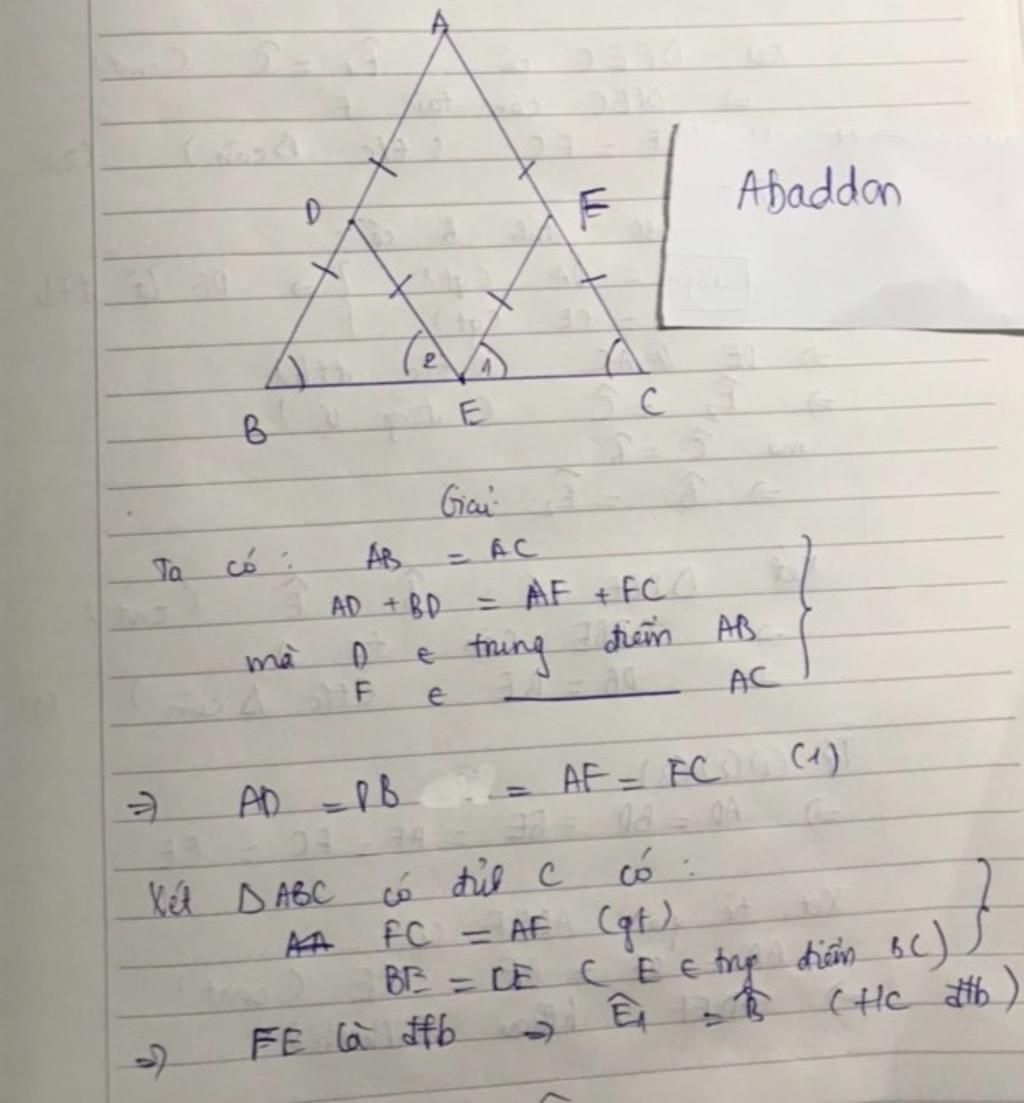 A
D
F
Abaddon
2
1
B
E
C
Giải
Ta có: AB = AC
AD + BD = AF + FC
mà D ∈ trung điểm AB
F ∈ ——— AC
=> AD = DB = AF = FC (1)
Xét ΔABC có C có:
FC = AF (gt)
BE = CE ( E ∈ trg điểm BC)
=> FE là đtb => Ê1 = B̂ (t/c đtb)